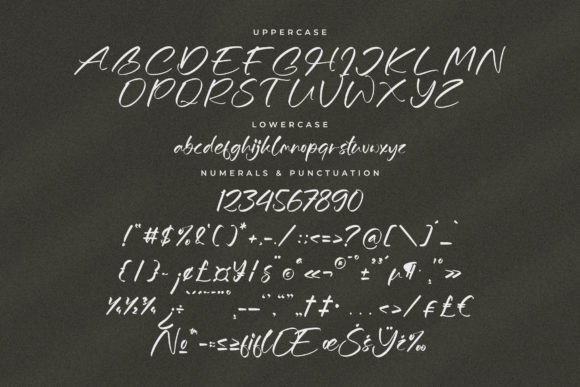 UPPERCASE
ABCDEFGHIJKLMN
OPQRSTUVWXYZ
LOWERCASE
abcdefghijklmnopqrstuvwxyz
NUMERALS & PUNCTUATION
1234567890
!"#$%&'()*+,-./:;<=>?@[\]^_`
{|}~¡¢£¤¥¦§¨©«¬®¯°±²³´µ¶·¸¹º»
¼½¾¿÷–—‘’‚“”„†‡•…‹›⁄₣₤€
№™−≈≤≥fiflŒœŠšŸž‰